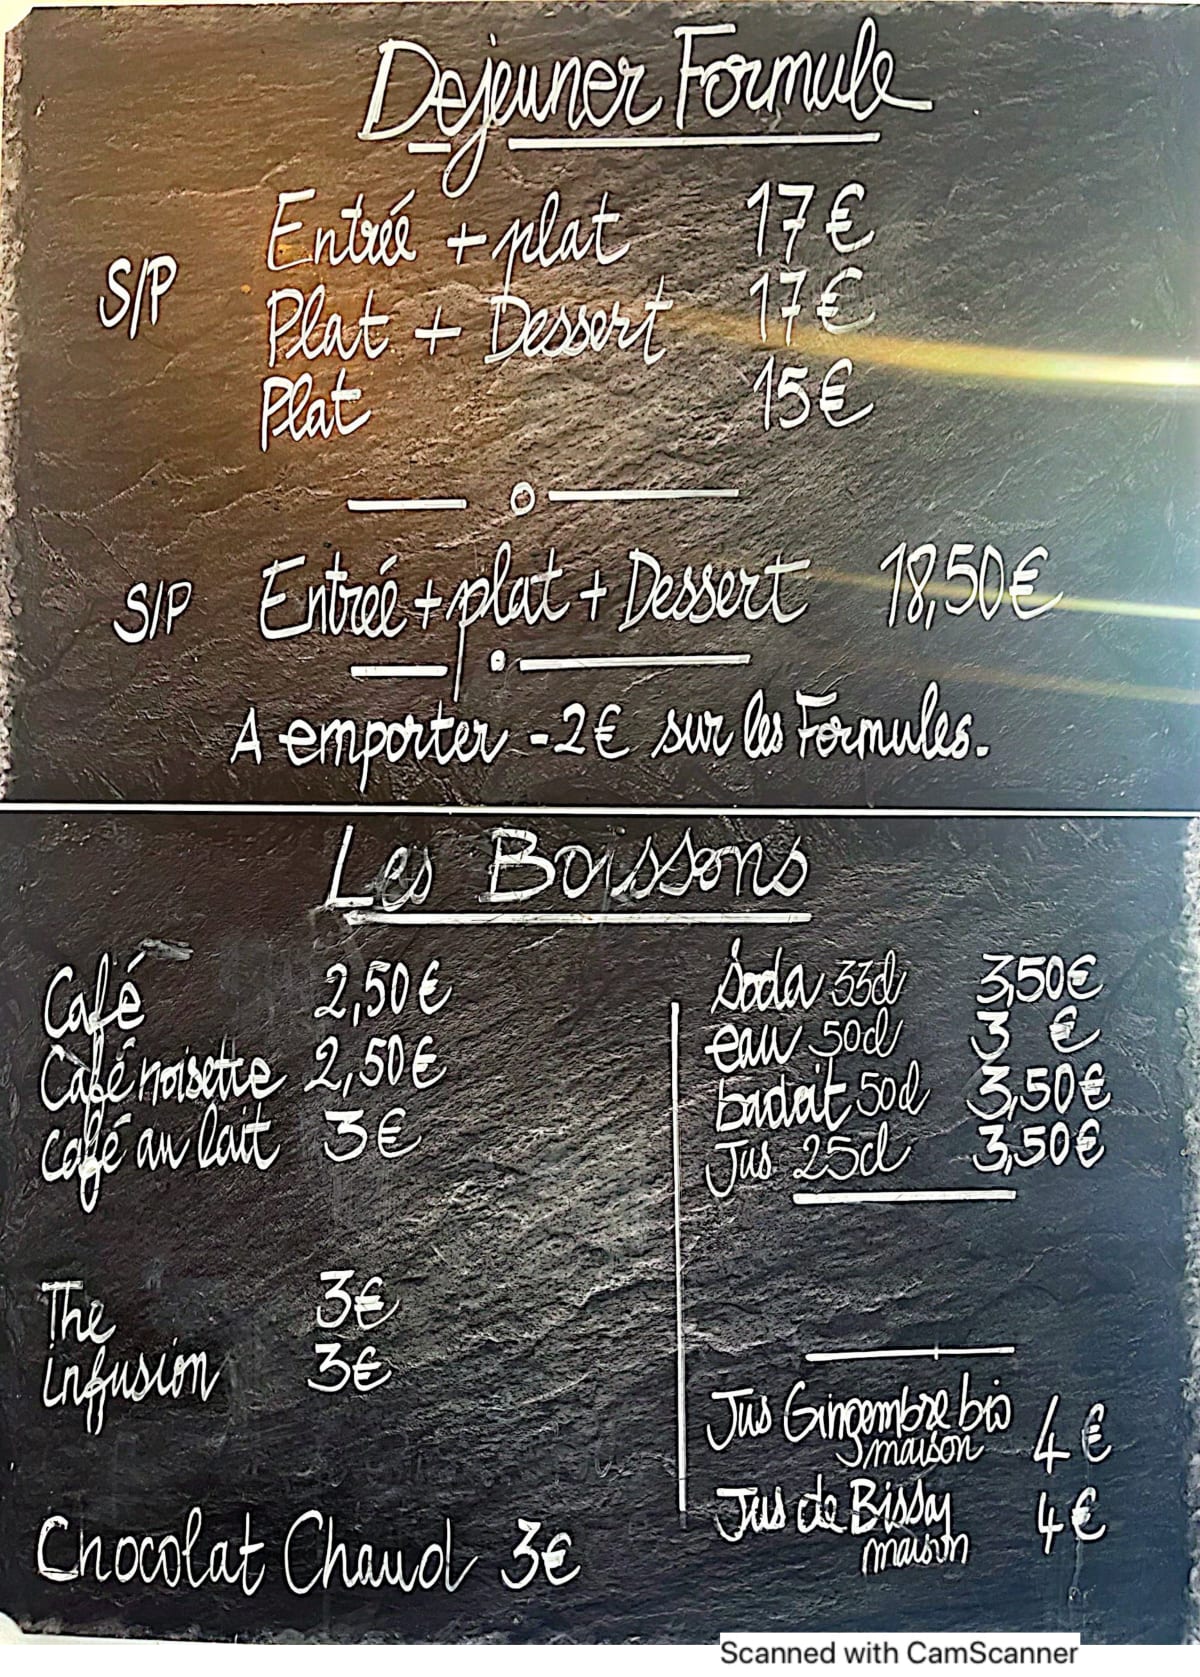 Dejeuner Formule
Entréé + plat 17€
S/P
Plat + Dessert 17€
Plat 15€
S/P Entréé + plat + Dessert 18,50€
A emporter -2€ sur les Formules.
Les Boissons
Café 2,50€
Café noisette 2,50€
Café au lait 3€
The 3€
infusion 3€
Chocolat Chaud 3€
Soda 33cl 3,50€
eau 50cl 3 €
badoit 50cl 3,50€
Jus 25cl 3,50€
Jus Gingembre bio
maison 4€
Jus de Bissay
maison 4€
Scanned with CamScanner